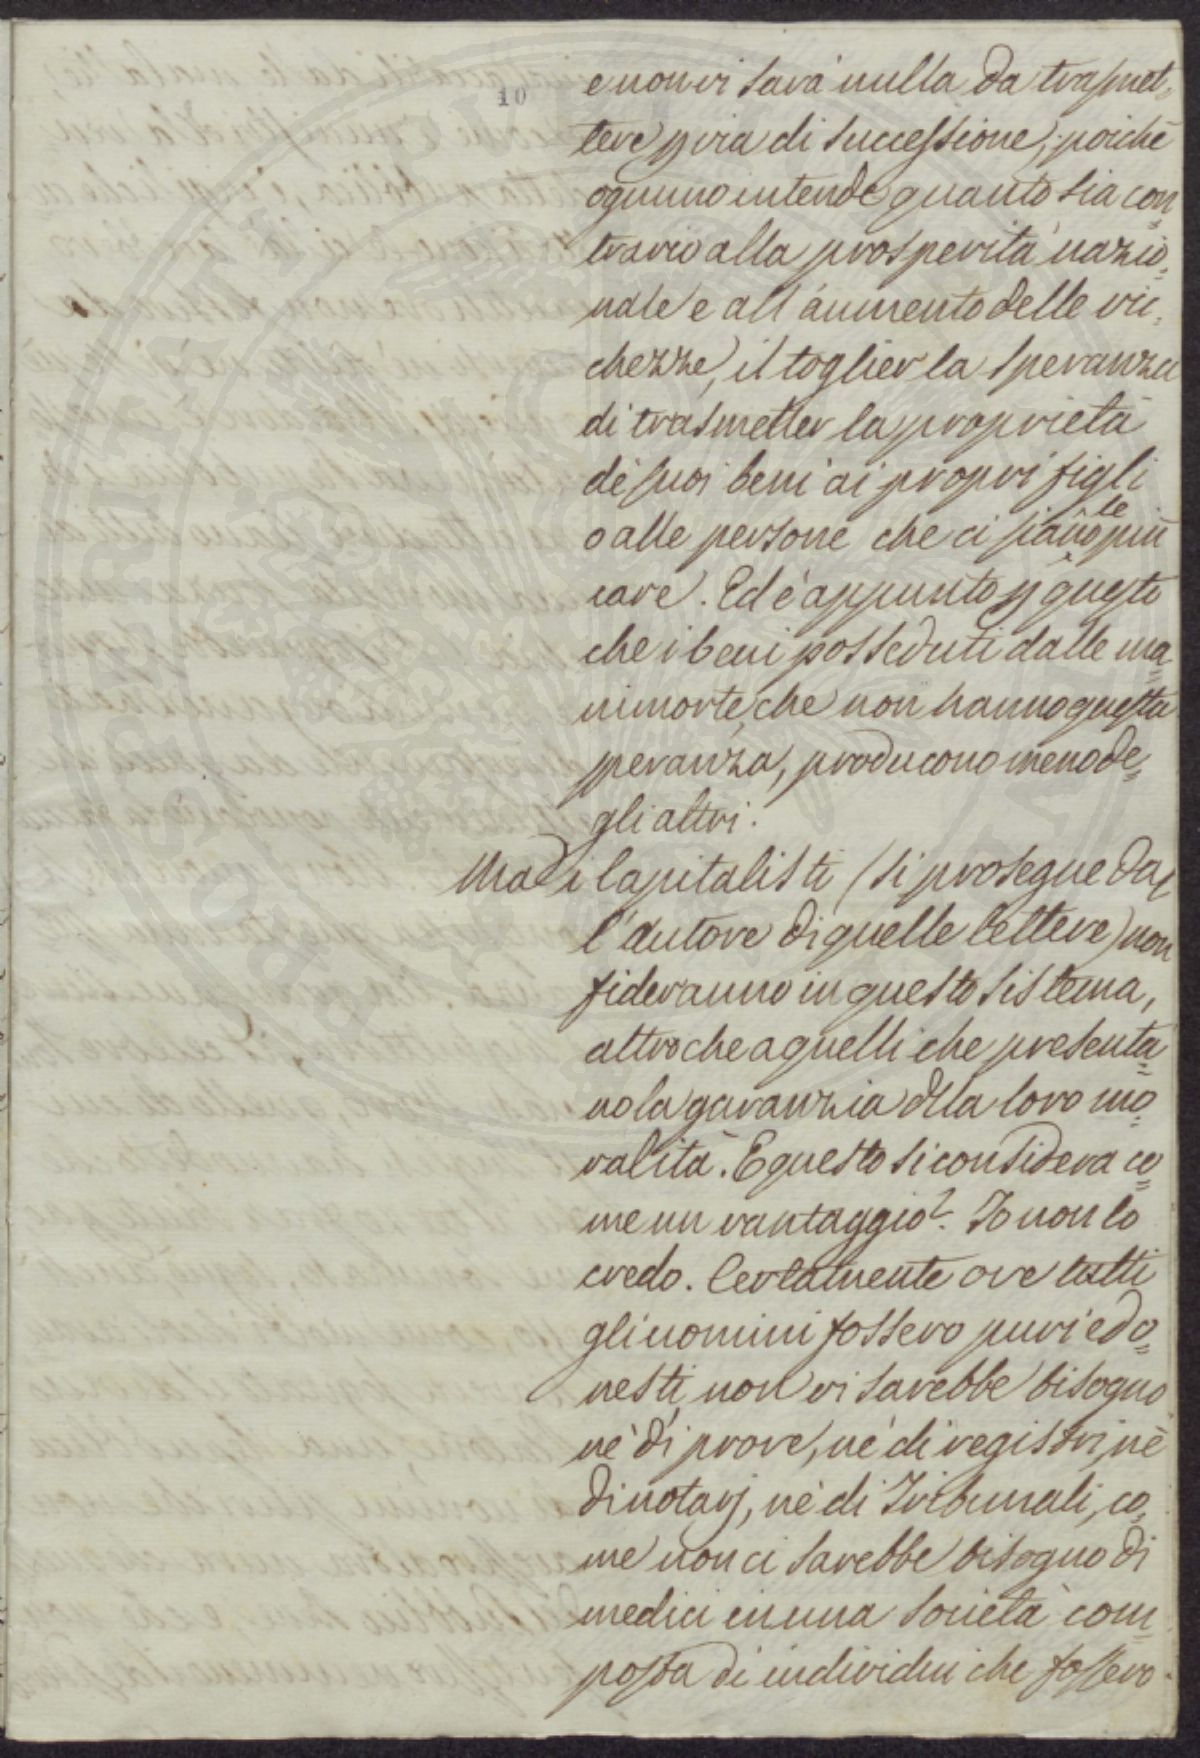 10
e non vi sarà nulla da trasmet-
tere p via di successione; poichè
ognuno intende quanto sia con
trario alla prosperità nazio-
nale e all'aumento delle ric-
chezze, il toglier la speranza
di trasmetter la proprietà
de' suoi beni ai propri figli
o alle persone che ci siano le più
care. Ed è appunto p questo
che i beni posseduti dalle ma
nimorte, che non hanno questa
speranza, producono meno de-
gli altri.
Ma i Capitalisti (si prosegue dal
l'autore di quelle lettere) non
fideranno in questo sistema,
altro che a quelli che presenta
no la garanzia della loro mo
ralità. E questo si considera co
me un vantaggio? Io non lo
credo. Certamente ove tutti
gli uomini fossero puri ed o
nesti, non vi sarebbe bisogno
nè di prove, nè di registri, nè
di notarj, nè di Tribunali, co
me non ci sarebbe bisogno di
medici in una società com
posta di individui che fossero